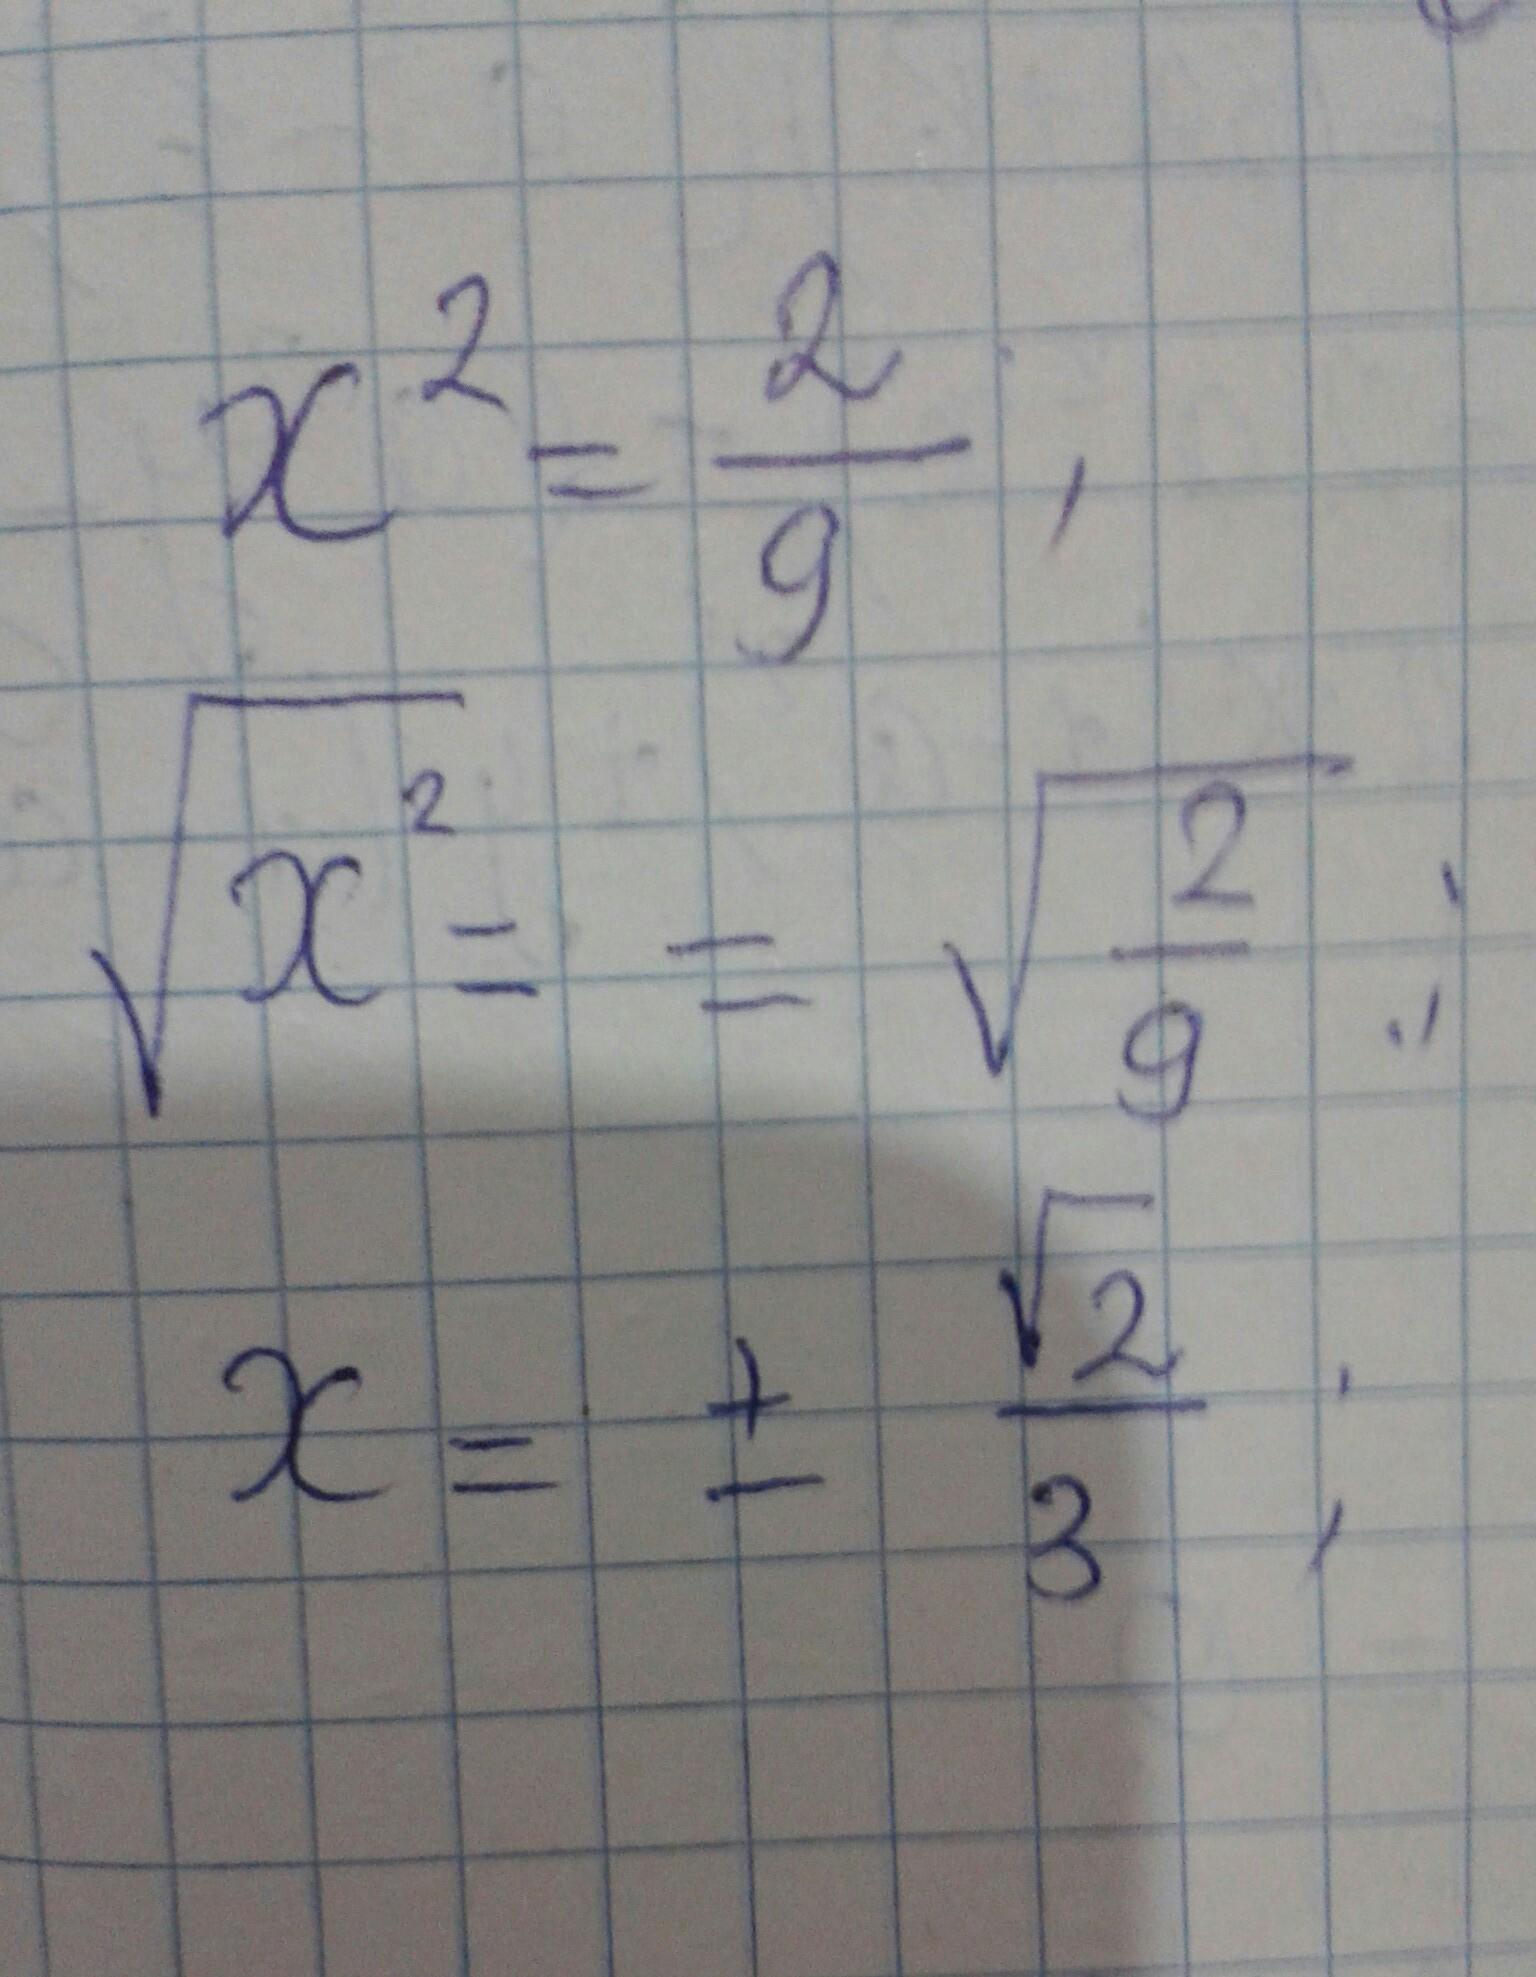 x² = 2/9 ;
√x² = = √2/9 ;
x = ± √2/3 ;